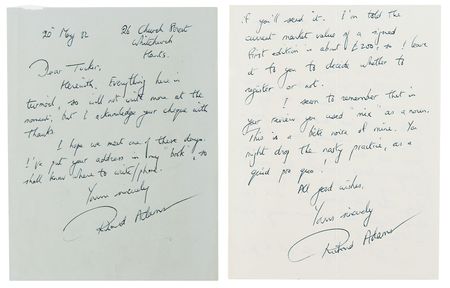 20 May 82 26 Church Street
Whitchurch
Hants.
Dear Tucker,
Herewith. Everything here in
turmoil, so will not write more at the
moment, but I acknowledge your cheque with
thanks.
I hope we meet one of these days.
I've put your address in my "book", so
shall know where to write/phone.
Yours sincerely
Richard Adams
if you'll send it. I'm told the
current market value of a signed
first edition is about £200, so I leave
it to you to decide whether to
register or not.
I seem to remember that in
your review you used "mix" as a noun.
This is a bête noire of mine. You
might drop the nasty practice, as a
quid pro quo!
All good wishes,
Yours sincerely
Richard Adams